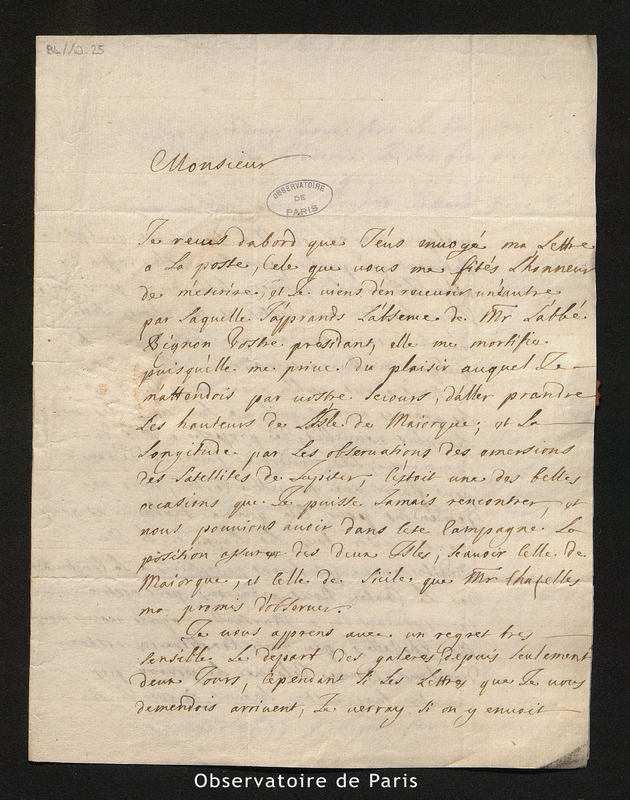 B4/10.25
Monsieur
OBSERVATOIRE
DE
PARIS
Je receus dabord que J'eus envoyé ma Lettre
a La poste, Cele que vous me fités L'honneur
de m'escrire, et Je viens d'en recevoir un'éautre
par Laquelle J'apprands L'absence de Mr L'abbé
Bignon Vostre presidant, elle me mortifie
puisqu'elle me prive du plaisir auquel Je
m'attendois par vostre secours, d'aller prandre
Les hauteurs de L'Isle de Maiorque, et La
Longitude par Les observations des emersions
des satellites de Jupiter, C'estoit une des belles
occasions que Je puisse Jamais rencontrer, et
nous pouvions avoir dans cete Campagne La
position des deux Isles, scavoir Celle de
Maiorque, et Celle de Sicile que Mr Chazelles
ma promis d'observer.
Je vous apprens avec un regret tres
sensible Le depart des galeres depuis seulement
deux Jours, Cependant si Les Lettres que Je vous
demendois arrivent, Je verray si on y envoit
Observatoire de Paris